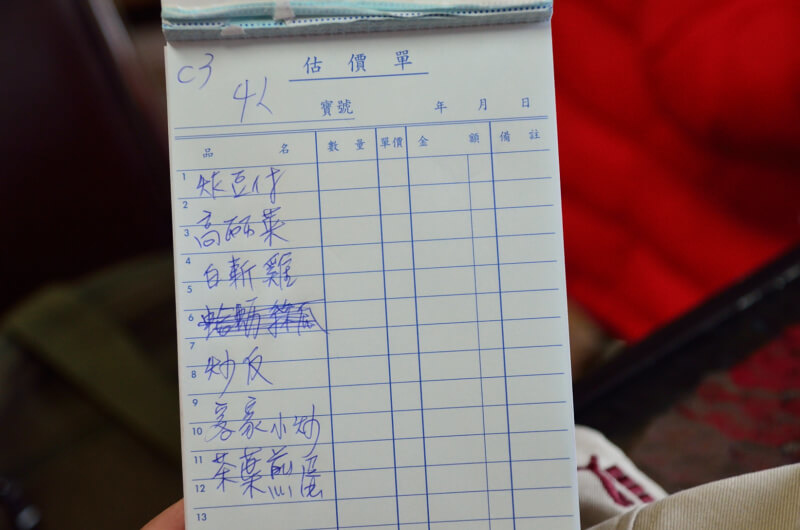 C3
估價單
4人
寶號 年 月 日
品名 數量 單價 金額 備註
1 炸豆付
2
3 高丽菜
4
5 白斬雞
6
7
8 炒反
9
10 客家小炒
11
12 茶葉煎蛋
13